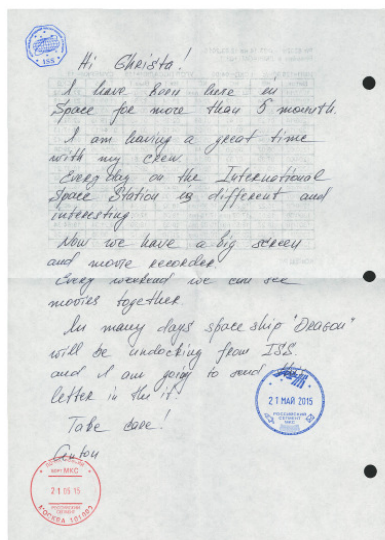 ISS
Hi Christa!
I have been here in
Space for more than 5 mounth.
I am having a great time
with my crew.
Every day on the International
Space Station is different and
interesting
Now we have a big screen
and movie recorder.
Every weekend we can see
movies together.
In many days space ship "Dragon"
will be undocking from ISS.
and I am going to send this
letter in the it!
Take care!
Anton
21 МАЙ 2015
РОССИЙСКИЙ
СЕГМЕНТ
МКС
МКС
21 05 15
РОССИЙСКИЙ
СЕГМЕНТ
МОСКВА 101001